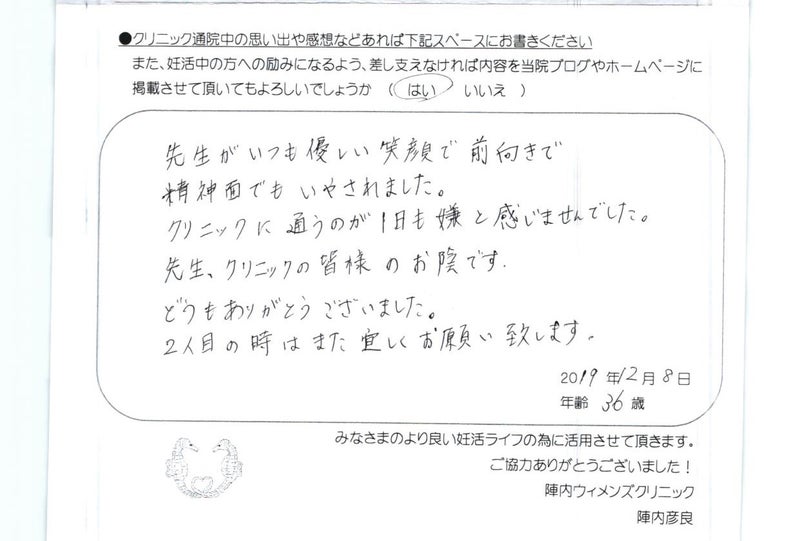 ●クリニック通院中の思い出や感想などあれば下記スペースにお書きください
また、妊活中の方への励みになるよう、差し支えなければ内容を当院ブログやホームページに
掲載させて頂いてもよろしいでしょうか （ はい ・ いいえ ）
先生がいつも優しい笑顔で前向きで
精神面でもいやされました。
クリニックに通うのが1日も嫌と感じませんでした。
先生、クリニックの皆様のお陰です.
どうもありがとうございました。
2人目の時はまた宜しくお願い致します。
2019年12月8日
年齢 36歳
みなさまのより良い妊活ライフの為に活用させて頂きます。
ご協力ありがとうございました！
陣内ウィメンズクリニック
陣内彦良